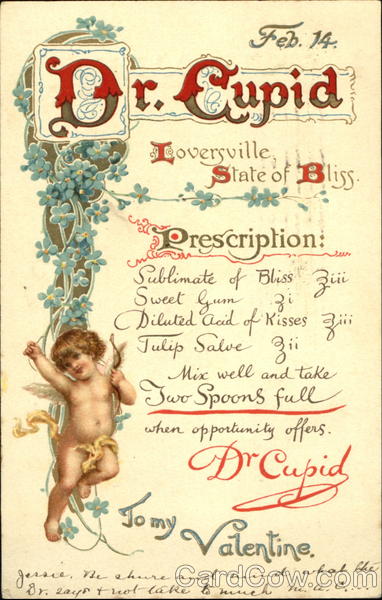 Feb. 14.
Dr. Cupid
Loversville,
State of Bliss.
Prescription:
Sublimate of Bliss ʒiii
Sweet Gum ʒi
Diluted Acid of Kisses ʒiii
Tulip Salve ʒii
Mix well and take
Two Spoons full
when opportunity offers.
Dr Cupid
To my
Valentine.
Jessie. Be shure and what the
Dr. says & not take to much
CardCow.com